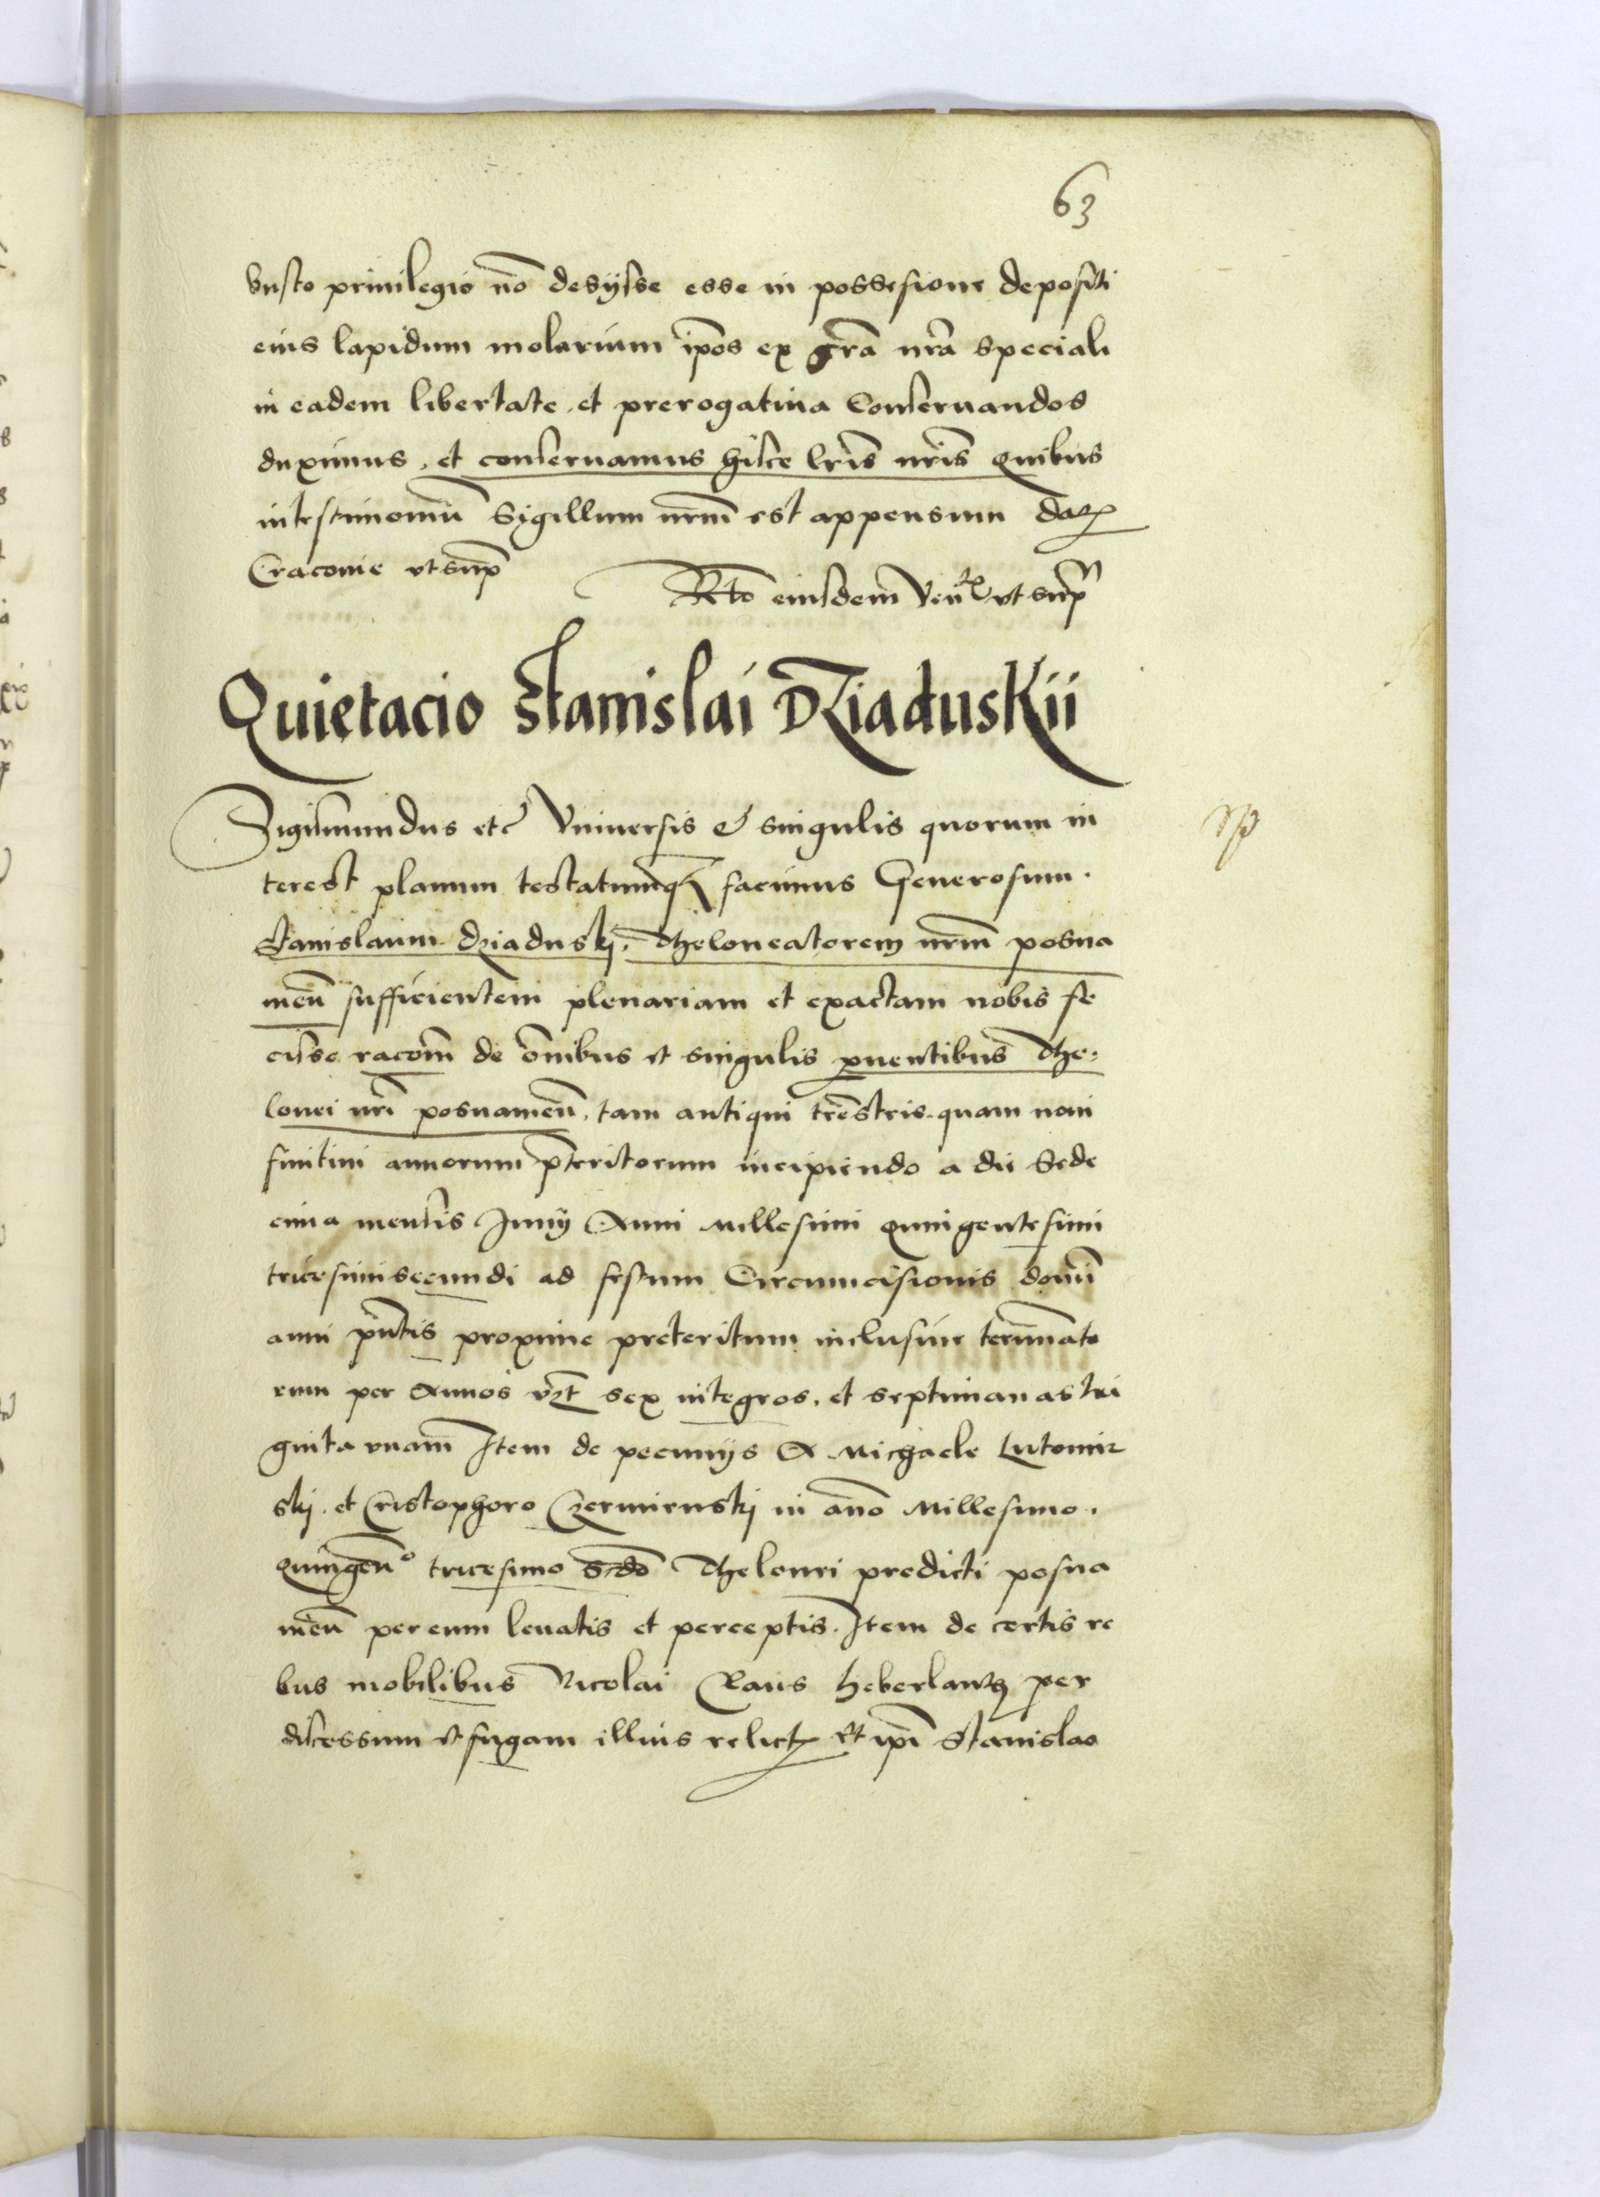 63
vusto priuilegio nō desÿsse esse in possesione depositi
eius lapidum molarium ip̄os ex gr̄a nr̄a speciali
in eadem libertate et prerogatiua Conseruandos
duximus, et conseruamus hisce lr̄is nr̄is quibus
in testimoniū Sigillum nr̄m est appensum Dat̄
Cracouie vt sup̄
Rt̄o eiusdem Ven vt sup̄
Quietacio Stanislai Dziaduskii
Sigismundus etc Vniuersis & singulis quorum in
terest planum testatumq̄ȝ facimus Generosum.
Stanislaum dziadusky, Theloneatorem nr̄m posna
men̄ sufficientem plenariam et exactam nobis fe
cisse racōm de ōnibus et singulis prouentibus The,
lonei nr̄i posnamen̄, tam antiqui tr̄estris quam noui
finitiui annorum p̄teritorum incipiendo a die Sede
cima mensis Junij Anni Millesimi quingentesimi
tricesimi secundi ad festum Circumcisionis domi̅
anni pn̄tis proxime preteritum inclusiue termīato
rum per Annos vȝt sex integros, et septimanas tri
ginta vnam Item de pecunijs A Michaele Lutomir
skj et Cristophoro Czermienskj in an̄o Millesimo.
Quingen̄o tricesimo s̄cdo Thelonei predicti posna
men̄ per eum leuatis et perceptis. Item de certis re
bus mobilibus Nicolai Raus heberlantȝ per
discessum et fugam illius relict̄ Et ip̄i Stanislao